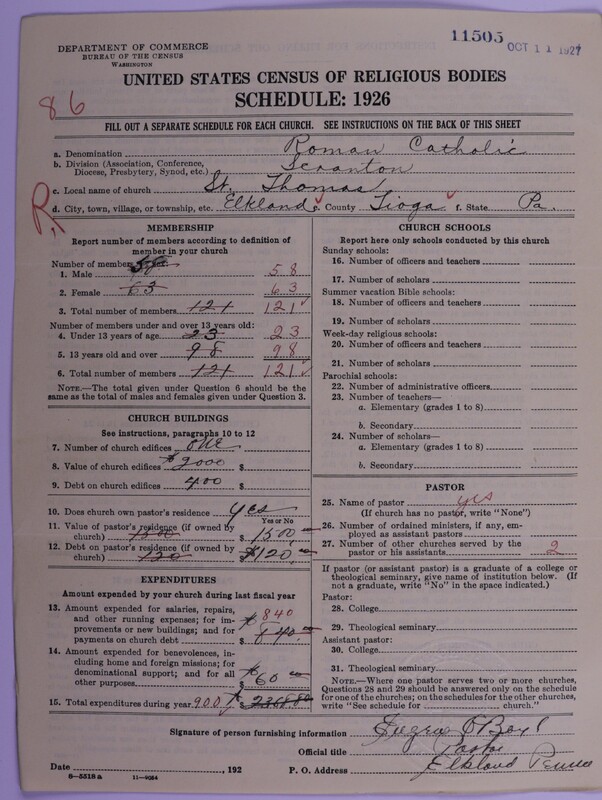 11505
OCT 11 1927
DEPARTMENT OF COMMERCE
BUREAU OF THE CENSUS
WASHINGTON
UNITED STATES CENSUS OF RELIGIOUS BODIES
SCHEDULE: 1926
86
FILL OUT A SEPARATE SCHEDULE FOR EACH CHURCH. SEE INSTRUCTIONS ON THE BACK OF THIS SHEET
a. Denomination Roman Catholic
b. Division (Association, Conference, Diocese, Presbytery, Synod, etc.) Scranton
c. Local name of church St. Thomas
d. City, town, village, or township, etc. Elkland e. County Tioga f. State Pa.
MEMBERSHIP
Report number of members according to definition of
member in your church
Number of members:
1. Male 58 58
2. Female 63 63
3. Total number of members 121 121
Number of members under and over 13 years old:
4. Under 13 years of age 23 23
5. 13 years old and over 98 98
6. Total number of members 121 121
NOTE.—The total given under Question 6 should be
same as the total of males and females given under Question 3.
CHURCH BUILDINGS
See instructions, paragraphs 10 to 12
7. Number of church edifices one
8. Value of church edifices $2000 $
9. Debt on church edifices 400 $
10. Does church own pastor's residence? yes
Yes or No
11. Value of pastor's residence (if owned by
church) 1500 $ 1500
12. Debt on pastor's residence (if owned by
church) 120 $120
EXPENDITURES
Amount expended by your church during last fiscal year
13. Amount expended for salaries, repairs,
and other running expenses; for im-
provements or new buildings; and for
payments on church debt $ 840
840
14. Amount expended for benevolences,
including home and foreign missions; for
denominational support; and for all
other purposes $ 60
15. Total expenditures during year 900
CHURCH SCHOOLS
Report here only schools conducted by this church
Sunday schools:
16. Number of officers and teachers
17. Number of scholars
Summer vacation Bible schools:
18. Number of officers and teachers
19. Number of scholars
Week-day religious schools:
20. Number of officers and teachers
21. Number of scholars
Parochial schools:
22. Number of administrative officers
23. Number of teachers—
a. Elementary (grades 1 to 8)
b. Secondary
24. Number of scholars—
a. Elementary (grades 1 to 8)
b. Secondary
PASTOR
25. Name of pastor yes
(If church has no pastor, write "None")
26. Number of ordained ministers, if any, em-
ployed as assistant pastors
27. Number of other churches served by the
pastor or his assistants 2
If pastor (or assistant pastor) is a graduate of a college or
theological seminary, give name of institution below. (If
not a graduate, write "No" in the space indicated.)
Pastor:
28. College
29. Theological seminary
Assistant pastor:
30. College
31. Theological seminary
NOTE.—Where one pastor serves two or more churches,
Questions 28 and 29 should be answered only on the schedule
for one of the churches; on the schedules for the other churches,
write "See schedule for church."
Signature of person furnishing information
Official title Pastor
Date , 192 P. O. Address Elkland Penna
8—5518 a 11—9054